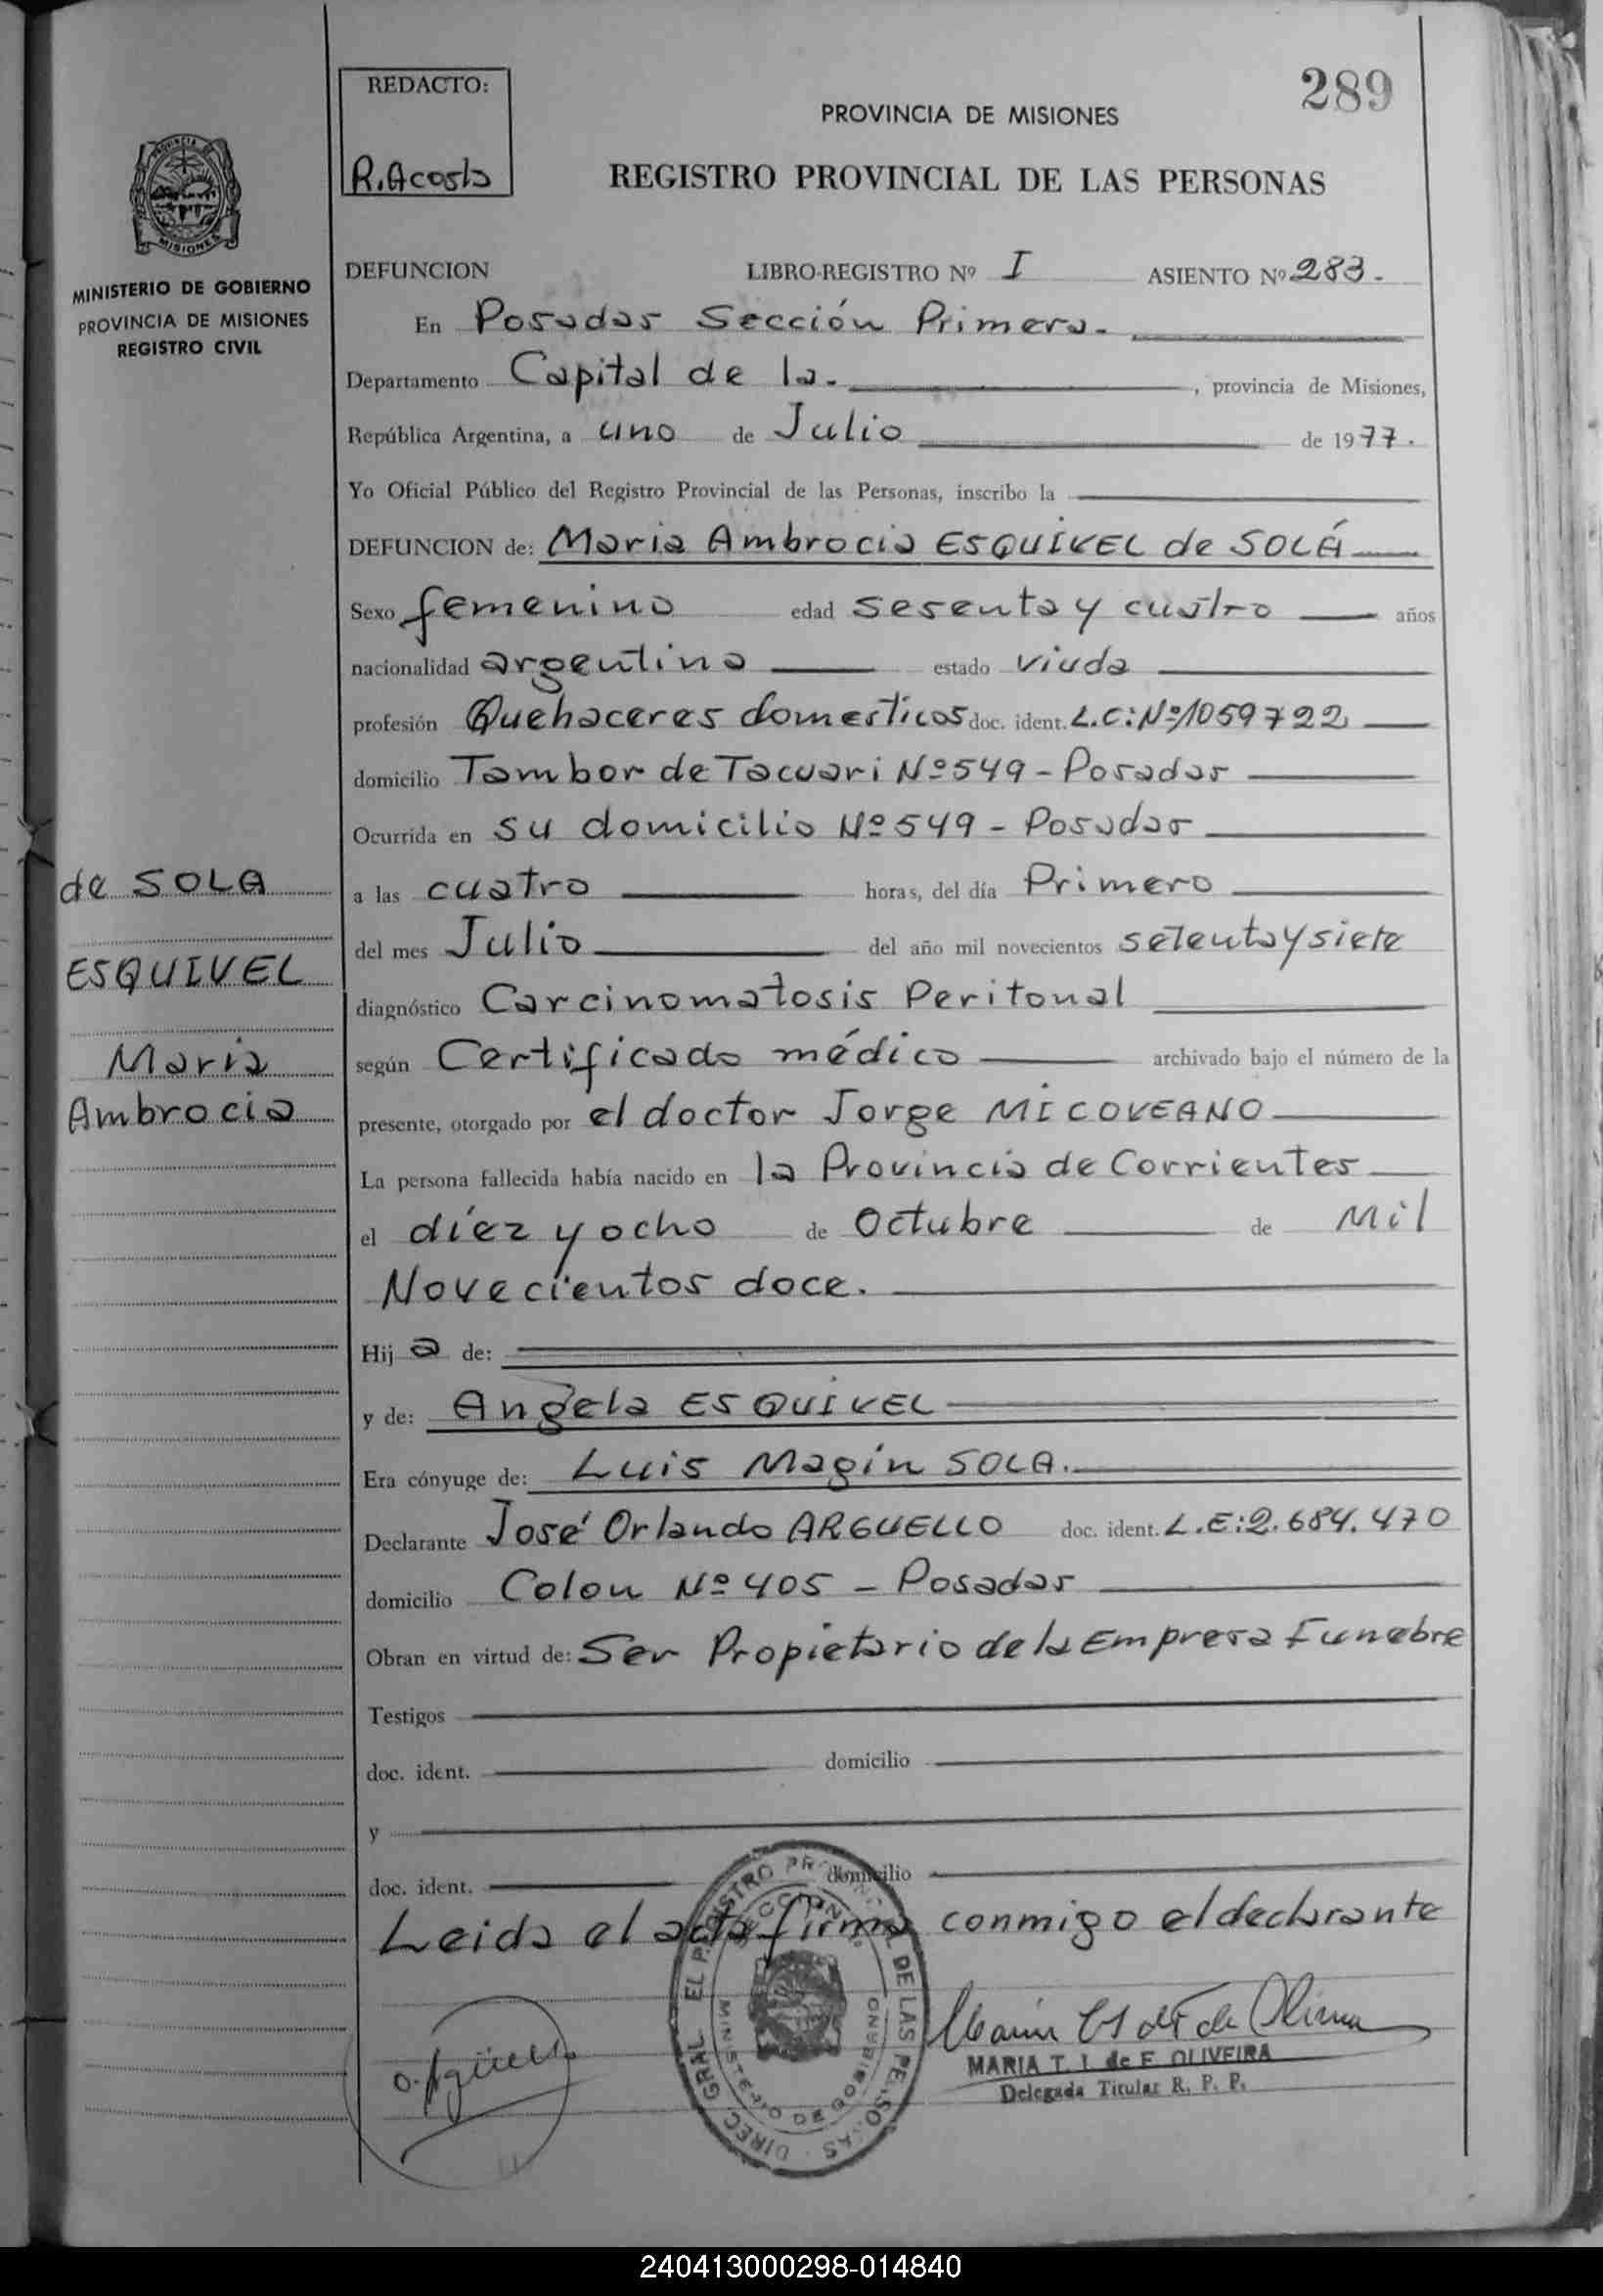 REDACTO:
R. Acosta
289
PROVINCIA DE MISIONES
REGISTRO PROVINCIAL DE LAS PERSONAS
PROVINCIA DE
MISIONES
MINISTERIO DE GOBIERNO
PROVINCIA DE MISIONES
REGISTRO CIVIL
DEFUNCION LIBRO-REGISTRO Nº I ASIENTO Nº 283.
En Posadas Sección Primera.
Departamento Capital de la. , provincia de Misiones,
República Argentina, a uno de Julio de 1977.
Yo Oficial Público del Registro Provincial de las Personas, inscribo la
DEFUNCION de: Maria Ambrocia ESQUIVEL de SOLÁ
Sexo femenino edad sesenta y cuatro años
nacionalidad argentina estado viuda
profesión Quehaceres domesticos doc. ident. L.C: Nº 1059722
domicilio Tambor de Tacuari Nº 549 - Posadas
Ocurrida en su domicilio Nº 549 - Posadas
a las cuatro horas, del día Primero
del mes Julio del año mil novecientos setenta y siete
diagnóstico Carcinomatosis Peritonal
según Certificado médico archivado bajo el número de la
presente, otorgado por el doctor Jorge MICOVEANO
La persona fallecida había nacido en la Provincia de Corrientes
el díez y ocho de Octubre de Mil
Novecientos doce.
Hij a de:
y de: Angela ESQUIVEL
Era cónyuge de: Luis Magín SOLA.
Declarante José Orlando ARGUELLO doc. ident. L.E: 2.684.470
domicilio Colon Nº 405 - Posadas
Obran en virtud de: Ser Propietario de la Empresa Funebre
Testigos
doc. ident. domicilio
y
doc. ident. domicilio
Leida el acta firma conmigo el declarante
de SOLA
ESQUIVEL
Maria
Ambrocia
DIREC. GRAL. DE LAS PERSONAS
MINISTERIO DE GOBIERNO
MARIA T. I. de F. OLIVEIRA
Delegada Titular R. P. P.
240413000298-014840